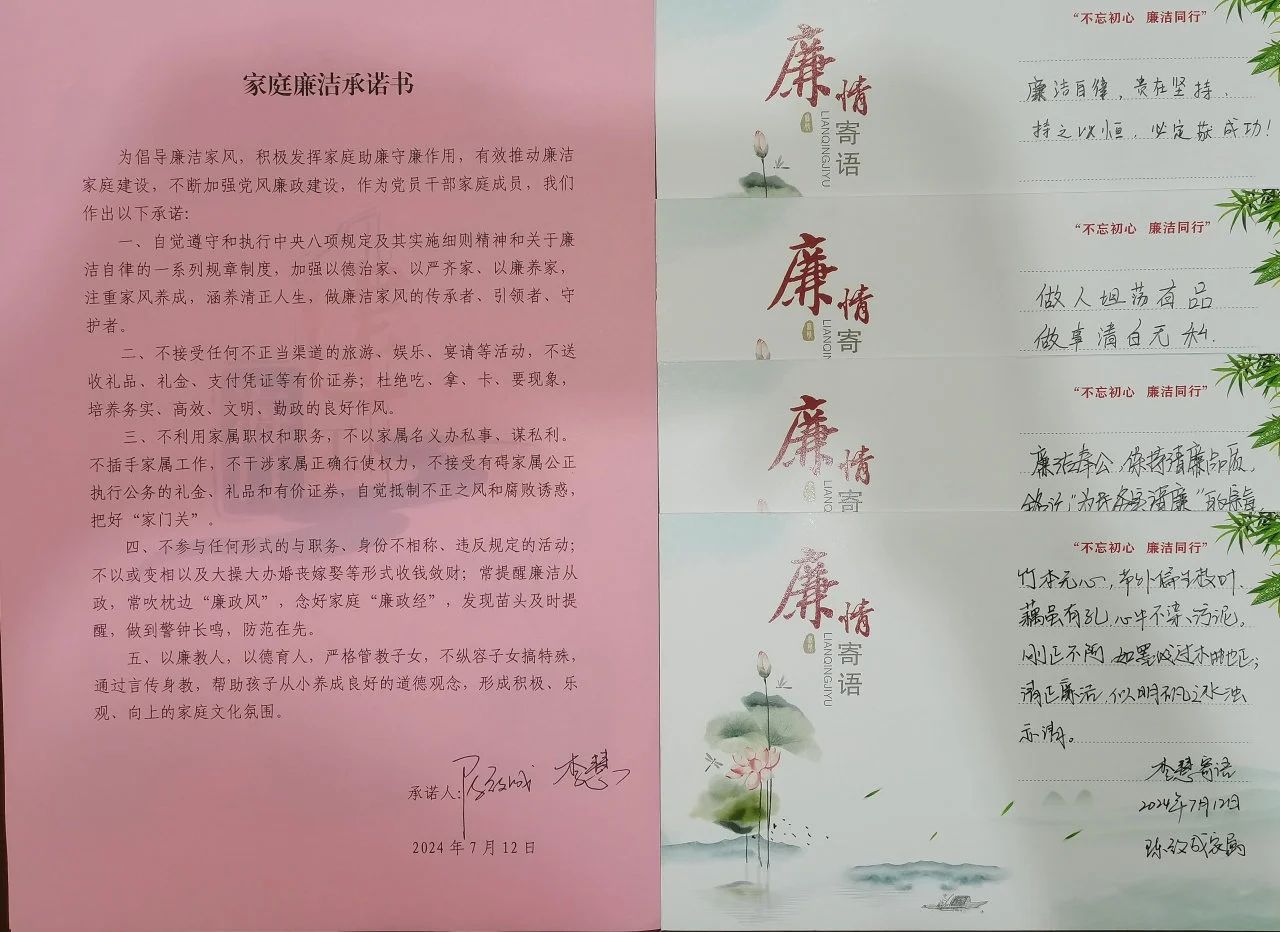 家庭廉洁承诺书
为倡导廉洁家风，积极发挥家庭助廉守廉作用，有效推动廉洁
家庭建设，不断加强党风廉政建设，作为党员干部家庭成员，我们
作出以下承诺:
一、自觉遵守和执行中央八项规定及其实施细则精神和关于廉
洁自律的一系列规章制度，加强以德治家、以严齐家、以廉养家，
注重家风养成，涵养清正人生，做廉洁家风的传承者、引领者、守
护者。
二、不接受任何不正当渠道的旅游、娱乐、宴请等活动，不送
收礼品、礼金、支付凭证等有价证券；杜绝吃、拿、卡、要现象，
培养务实、高效、文明、勤政的良好作风。
三、不利用家属职权和职务，不以家属名义办私事、谋私利。
不插手家属工作，不干涉家属正确行使权力，不接受有碍家属公正
执行公务的礼金、礼品和有价证券，自觉抵制不正之风和腐败诱惑，
把好“家门关”。
四、不参与任何形式的与职务、身份不相称、违反规定的活动；
不以或变相以及大操大办婚丧嫁娶等形式收钱敛财；常提醒廉洁从
政，常吹枕边“廉政风”，念好家庭“廉政经”，发现苗头及时提
醒，做到警钟长鸣，防范在先。
五、以廉教人，以德育人，严格管教子女，不纵容子女搞特殊，
通过言传身教，帮助孩子从小养成良好的道德观念，形成积极、乐
观、向上的家庭文化氛围。
承诺人: 李慧
2024年7月12日
廉情寄语
LIANQINGJIYU
“不忘初心 廉洁同行”
廉洁自律，贵在坚持，
持之以恒，必定获成功！
廉情寄
LIANQIN
“不忘初心 廉洁同行”
做人坦荡有品
做事清白无私.
廉情寄
LIANQIN
“不忘初心 廉洁同行”
廉洁奉公，保持清廉品质，
铭记“为民务实清廉”的宗旨
廉情寄语
LIANQINGJIYU
“不忘初心 廉洁同行”
竹本无心，节外偏生枝叶，
藕虽有孔，心中不染污泥。
刚正不阿，如墨
清正廉洁，似明矾之水浊
亦清。
李慧寄语
2024年7月12日
家属